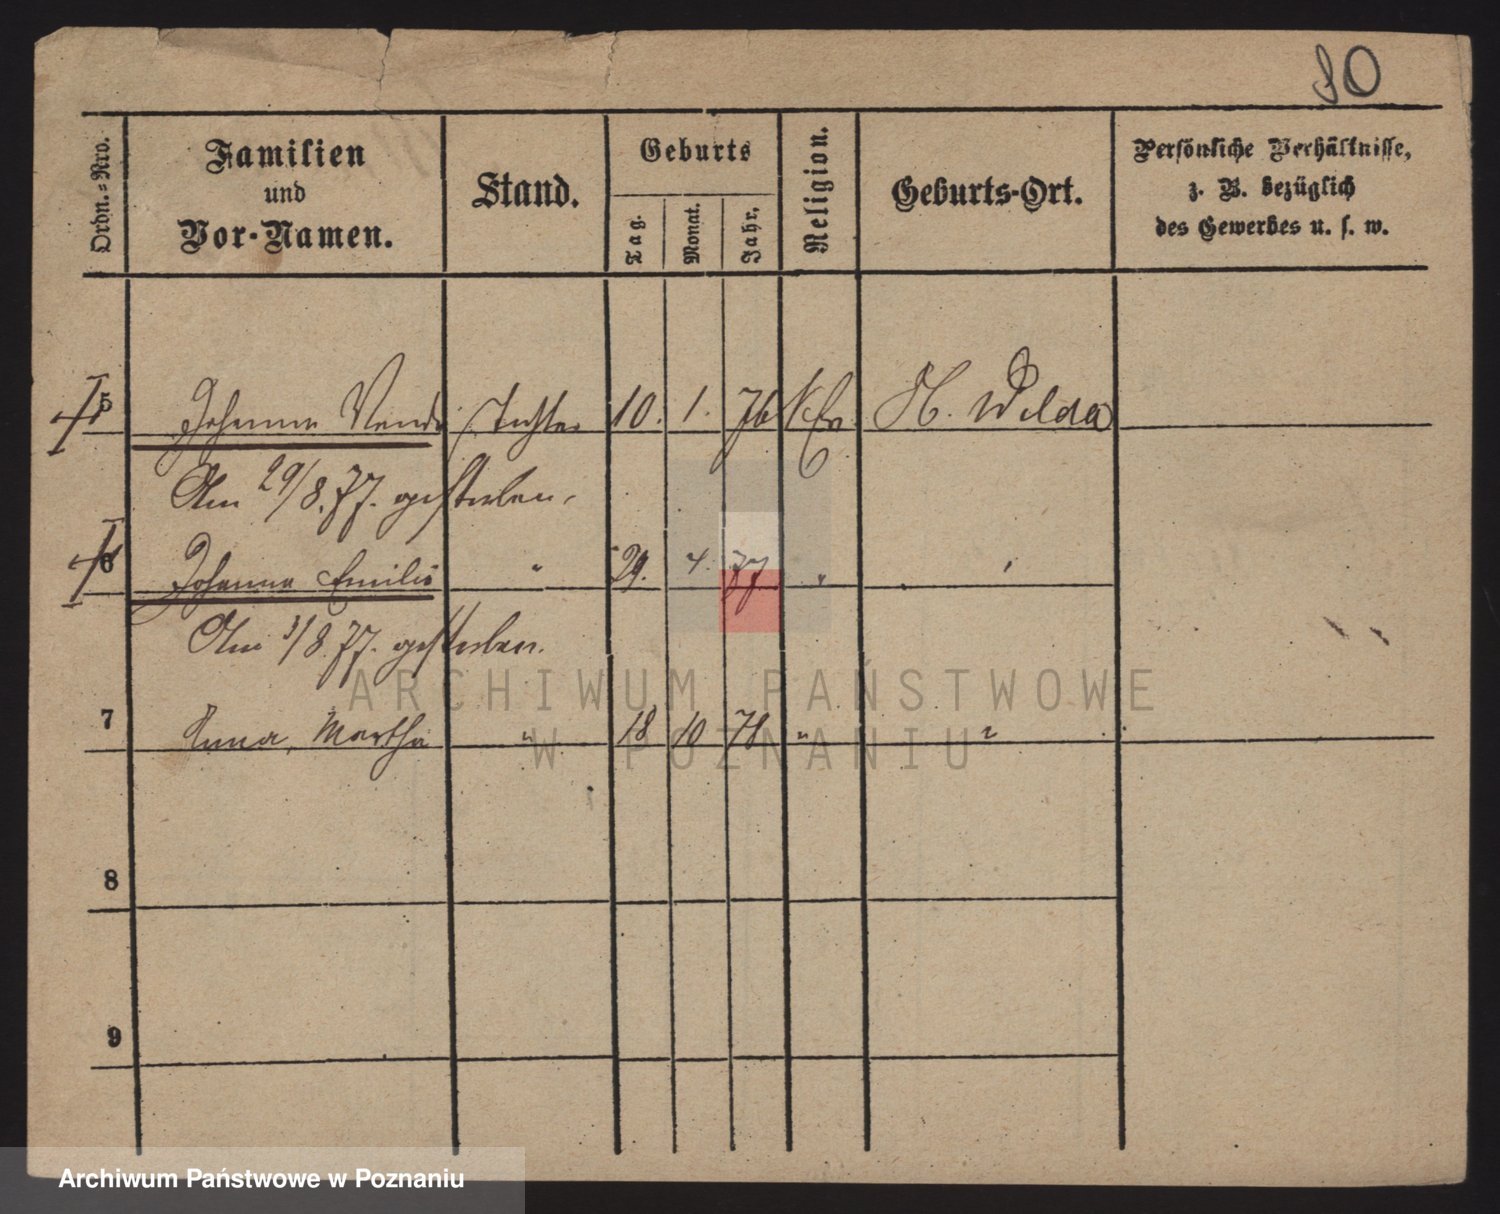 90
Ordn.=Nro.
Familien
und
Vor-Namen.
Stand.
Geburts
Tag.
Monat.
Jahr.
Religion.
Geburts-Ort.
Persönliche Verhältnisse,
z. B. bezüglich
des Gewerbes u. s. w.
5 Johanna Tochter 10. 1. 76 Wilda
Am 29/8. 77. gestorben.
6 Johanna Emilie " 29. 4. 77 " "
Am 3/8. 77. gestorben.
7 Anna, Martha " 18 10 78 " "
8
9
ARCHIWUM PAŃSTWOWE
W POZNANIU
Archiwum Państwowe w Poznaniu